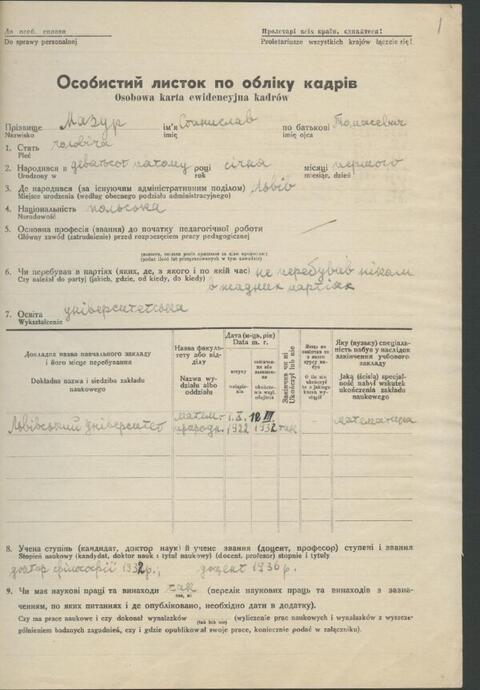 До особ. справи
Do sprawy personalnej
Пролетарі всіх країн, єднайтеся!
Proletariusze wszystkich krajów łączcie się!
1
Особистий листок по обліку кадрів
Osobowa karta ewidencyjna kadrów
Прізвище Мазур ім'я Станислав по батькові Томасевич
Nazwisko imię imię ojca
1. Стать чоловіча
Płeć
2. Народився в дев'атьсот п'атому році січня місяці першого
Urodzony w rok miesiąc, dzień
3. Де народився (за існуючим адміністративним поділом) Львів
Miejsce urodzenia (według obecnego podziału administracyjnego)
4. Національність польська
Narodowość
5. Основна професія (звання) до початку педагогічної роботи —
Główny zawód (zatrudnienie) przed rozpoczęciem pracy pedagogicznej
6. Чи перебував в партіях (яких, де, з якого і по якій час) не перебував ніколи
Czy należał do partyj (jakich, gdzie, od kiedy, do kiedy) в жадних партіях
7. Освіта університетська
Wykształcenie
Докладна назва навчального закладу і його місце перебування
Dokładna nazwa i siedziba zakładu naukowego
Назва факультету або відділу
Nazwa wydziału albo oddziału
Дата (м-ць, рік)
Data m. r.
вступу
Закінчив чи ні
Ukończył lub nie
Яку (вузьку) спеціальність набув у наслідок закінчення учбового закладу
Jaką (ścisłą) specjalność nabył wskutek ukończenia zakładu naukowego
Львівський університет матем. природн. 1.X. 1922 12 III. 1932 так — математика
8. Учена ступінь (кандидат, доктор наук) й учене звання (доцент, професор) ступені і звання
Stopień naukowy (kandydat, doktor nauk i tytuł naukowy) (docent, profesor) stopnie i tytuły
доктор філософії 1932 р., доцент 1936 р.
9. Чи має наукові праці та винаходи так (перелік наукових праць та винаходів з зазначенням,
так, ні
по яких питаннях і де опубліковано, необхідно дати в додатку).
Czy ma prace naukowe i czy dokonał wynalazków (wyliczenie prac naukowych i wynalazków z wyszczególnieniem
(tak lub nie)
badanych zagadnień, czy i gdzie opublikował swoje prace, koniecznie podać w załączniku).